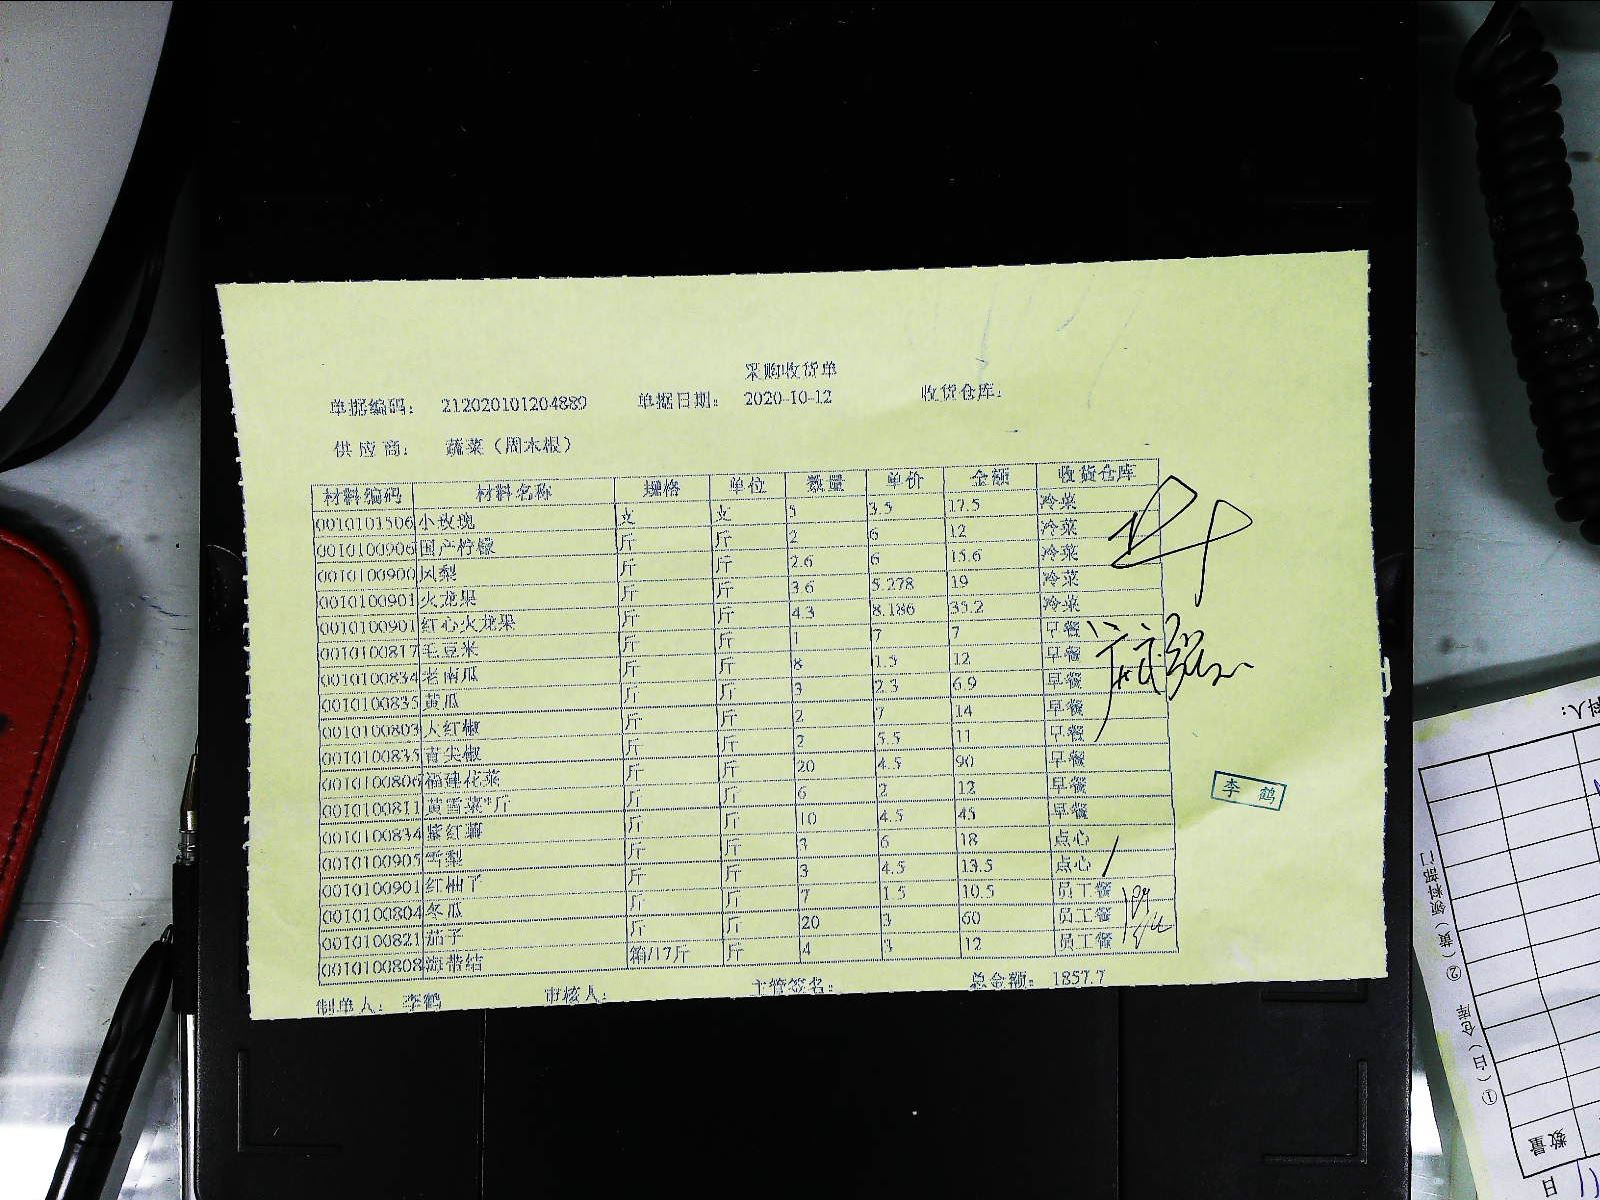 采购收货单
单据编码： 212020101204889 单据日期： 2020-10-12 收货仓库：
供应商： 蔬菜（周木根）
材料编码 材料名称 规格 单位 数量 单价 金额 收货仓库
0010101506 小玫瑰 支 支 5 3.5 17.5 冷菜
0010100906 国产柠檬 斤 斤 2 6 12 冷菜
0010100900 凤梨 斤 斤 2.6 6 15.6 冷菜
0010100901 火龙果 斤 斤 3.6 5.278 19 冷菜
0010100901 红心火龙果 斤 斤 4.3 8.186 35.2 冷菜
0010100817 毛豆米 斤 斤 1 7 7 早餐
0010100834 老南瓜 斤 斤 8 1.5 12 早餐
0010100835 黄瓜 斤 斤 3 2.3 6.9 早餐
0010100803 大红椒 斤 斤 2 7 14 早餐
0010100835 青尖椒 斤 斤 2 5.5 11 早餐
0010100806 福建花菜 斤 斤 20 4.5 90 早餐
0010100811 黄雪菜*斤 斤 斤 6 2 12 早餐
0010100834 紫红薯 斤 斤 10 4.5 45 早餐
0010100905 雪梨 斤 斤 3 6 18 点心
0010100901 红柚子 斤 斤 3 4.5 13.5 点心
0010100804 冬瓜 斤 斤 7 1.5 10.5 员工餐
0010100821 茄子 斤 斤 20 3 60 员工餐
0010100808 海带结 箱/17斤 斤 4 3 12 员工餐
制单人： 李鹤 审核人： 主管签名： 总金额： 1857.7
李鹤
料人：
①（白）仓库 ②（黄）领料部门
数量
日